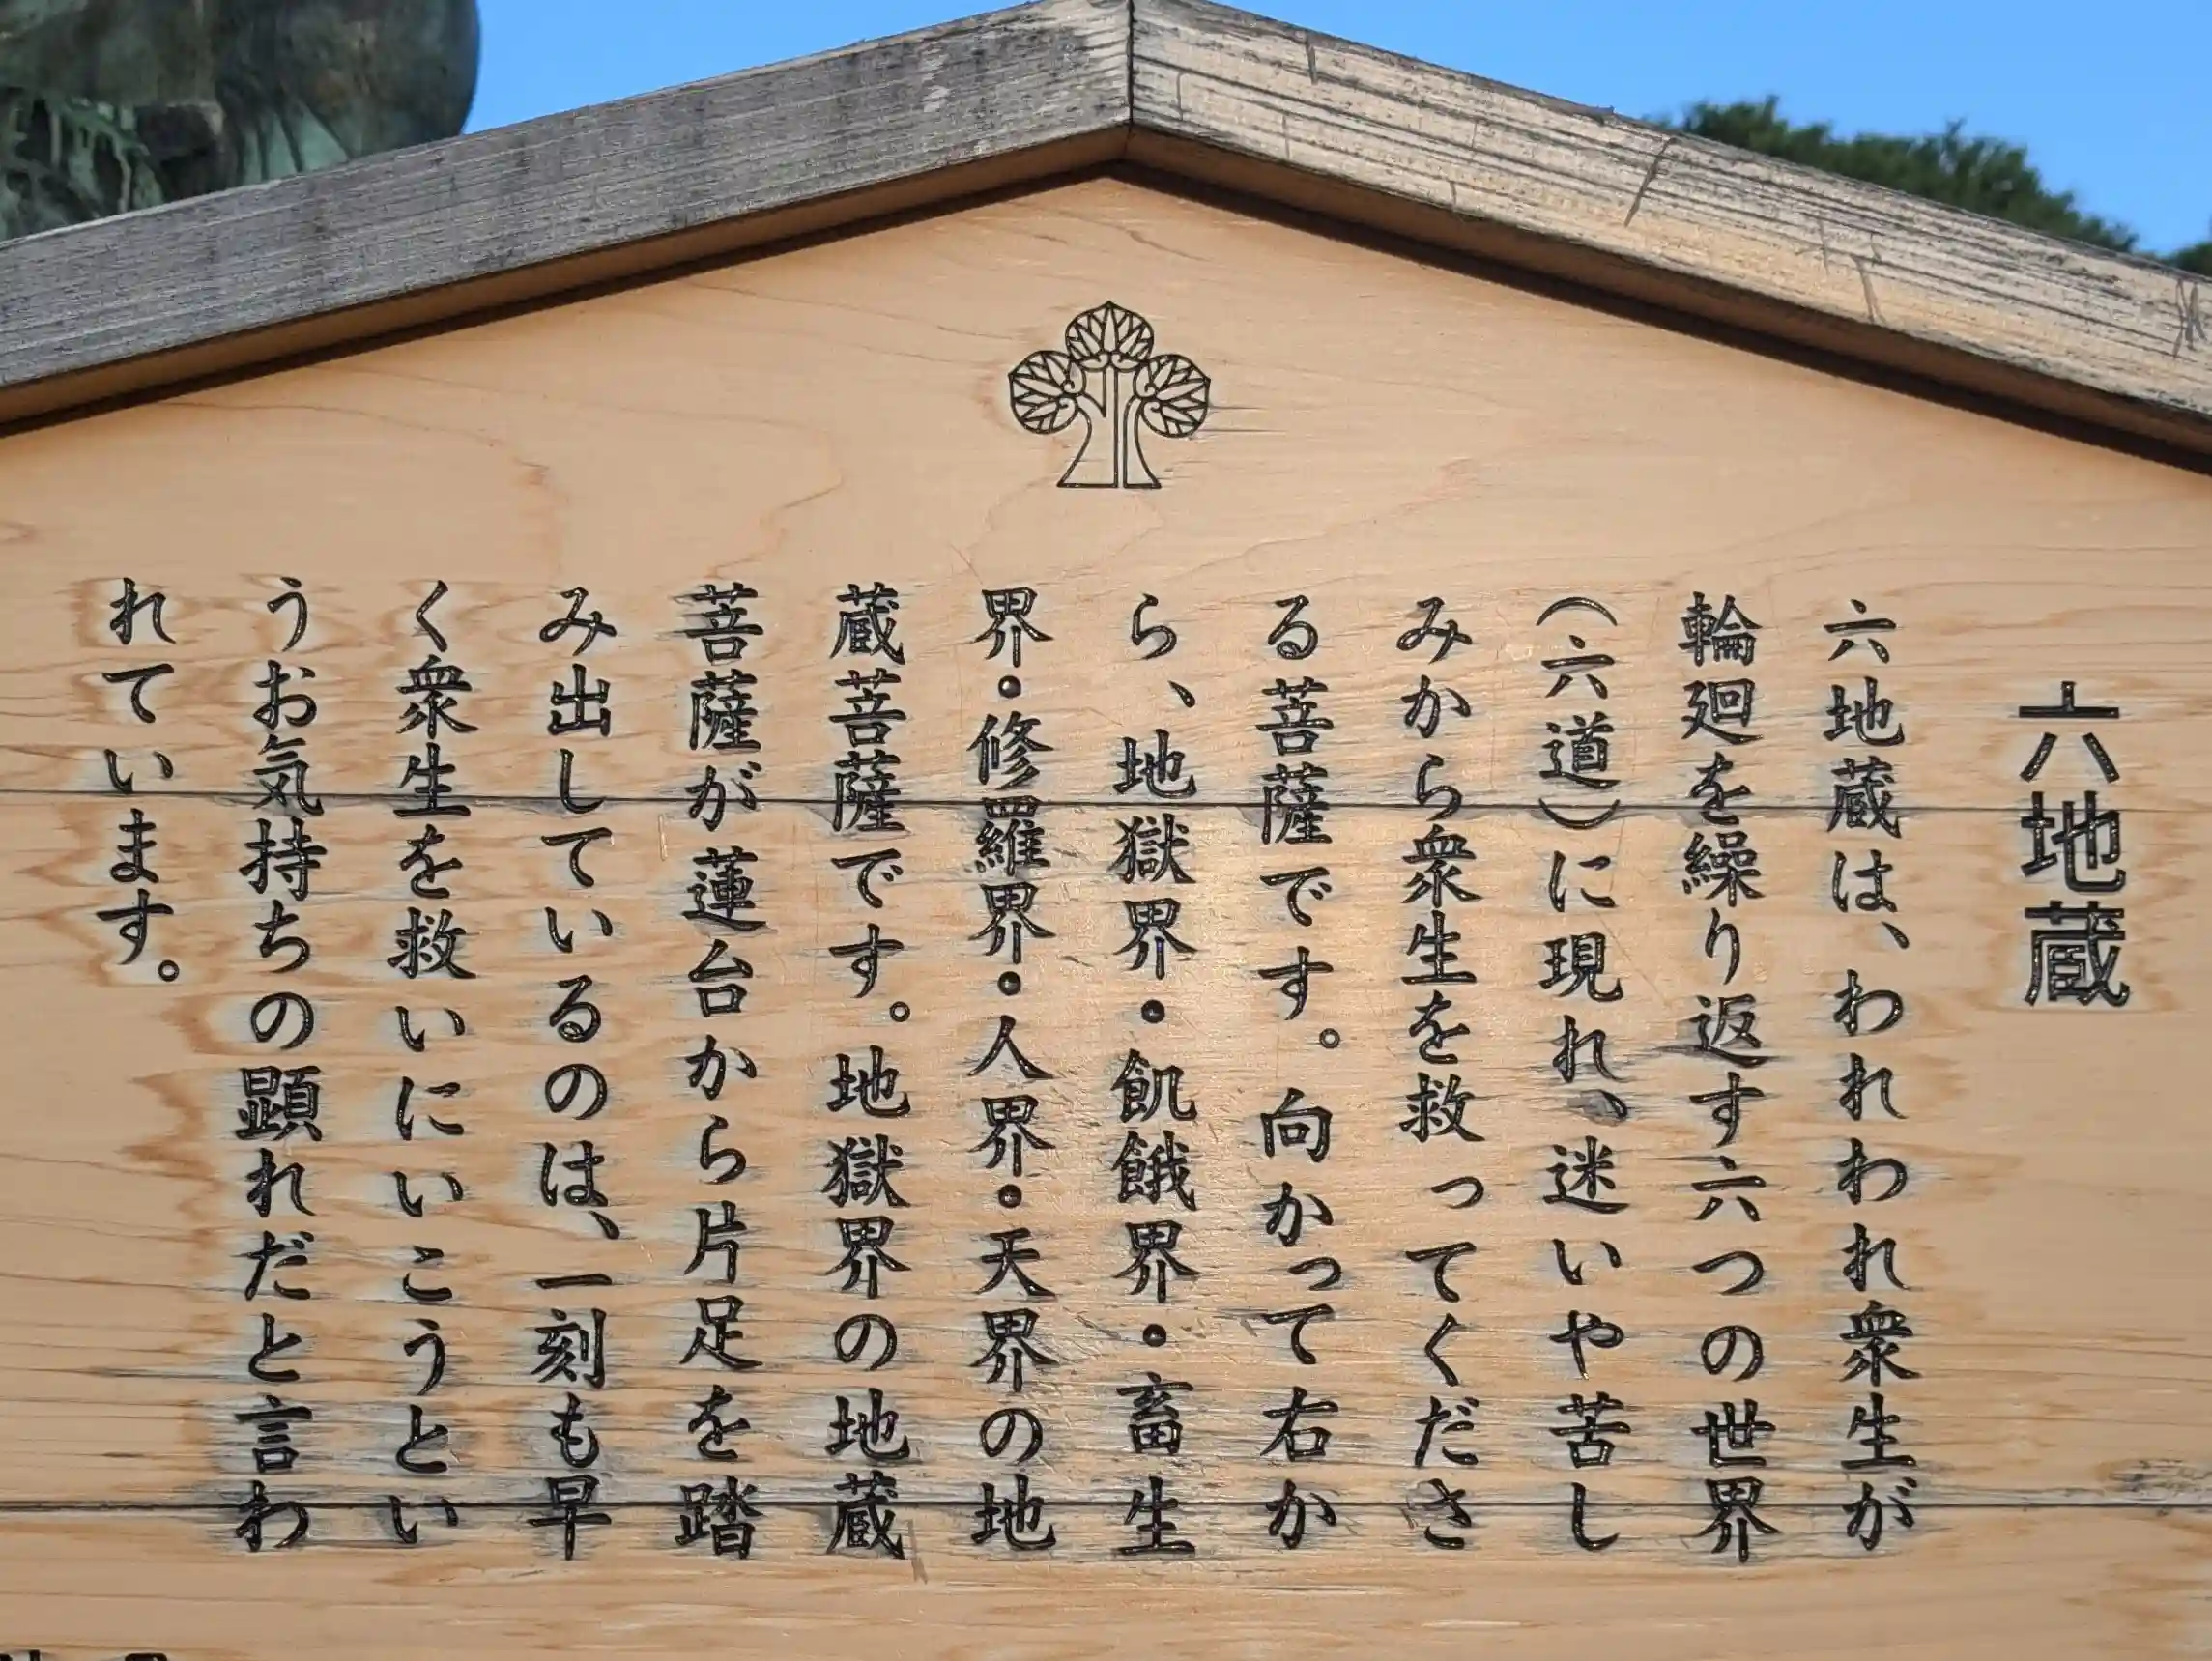 六地蔵
六地蔵は、われわれ衆生が
輪廻を繰り返す六つの世界
(六道)に現れ、迷いや苦し
みから衆生を救ってくださ
る菩薩です。向かって右か
ら、地獄界・飢餓界・畜生
界・修羅界・人界・天界の地
蔵菩薩です。地獄界の地蔵
菩薩が蓮台から片足を踏
み出しているのは、一刻も早
く衆生を救いにいこうとい
うお気持ちの顕れだと言わ
れています。